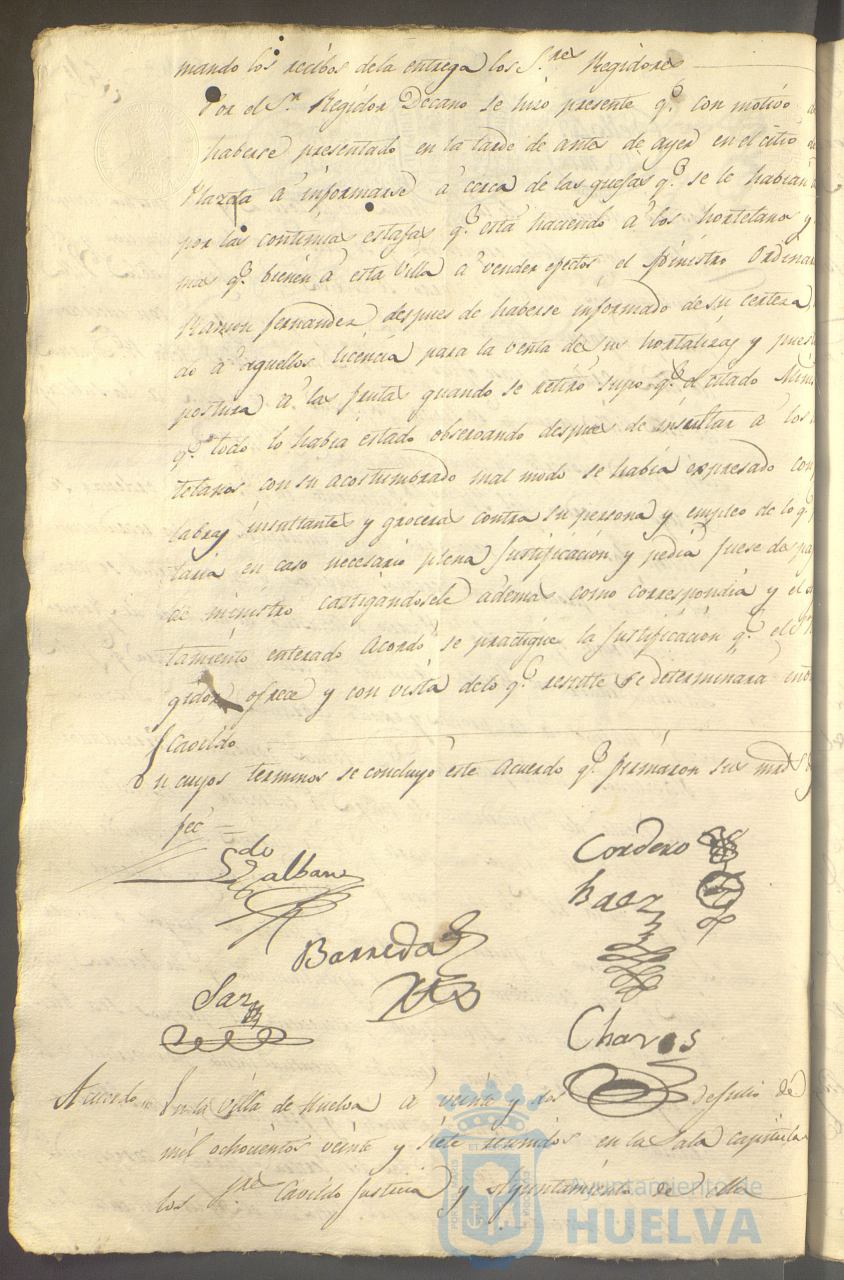 mando los recibos dela entrega los S.res Regidores
Por el S.r Regidor Decano se hizo presente q.e con motivo de
haberse presentado en la tarde de antes de ayer en el citio de
Plazeta á informarse á cerca de las quejas q.e se le habian
por las continuas estafas q.e está haciendo á los hortelanos y
mas q.e bienen á esta Villa á vender efectos el Ministro Ordinar
Ramon Fernandez despues de haberse informado de su certeza
do á aquellos licencia para la venta de sus hortalizas y pues
postura á la fruta quando se retiró supo q.e el citado Minis
q.e todo lo habia estado observando despues de insultar á los
telanos con su acostumbrado mal modo se había expresado con
labras insultantes y groceras contra su persona y empleo de lo q.e
taria en caso necesario plena Justificacion y pedia fuese des
de ministro castigandosele ademas como correspondia y el
tamiento enterado Acordó se practique la Justificacion q.e el S.r
gidor ofrece y con vista delo q.e resulte se determinará
Cavildo
En cuyos terminos se concluyó este Acuerdo q.e firmaron sus mrds
fee =
Cordero
Galban
Baez
Barreda
Saz
Chaves
Acuerdo En la Villa de Huelva á veinte y dos de Julio de
mil ochocientos veinte y siete reunidos en la Sala capitular
los S.res Cavildo Justicia y Ayuntamiento de ella
Ayuntamiento de
HUELVA